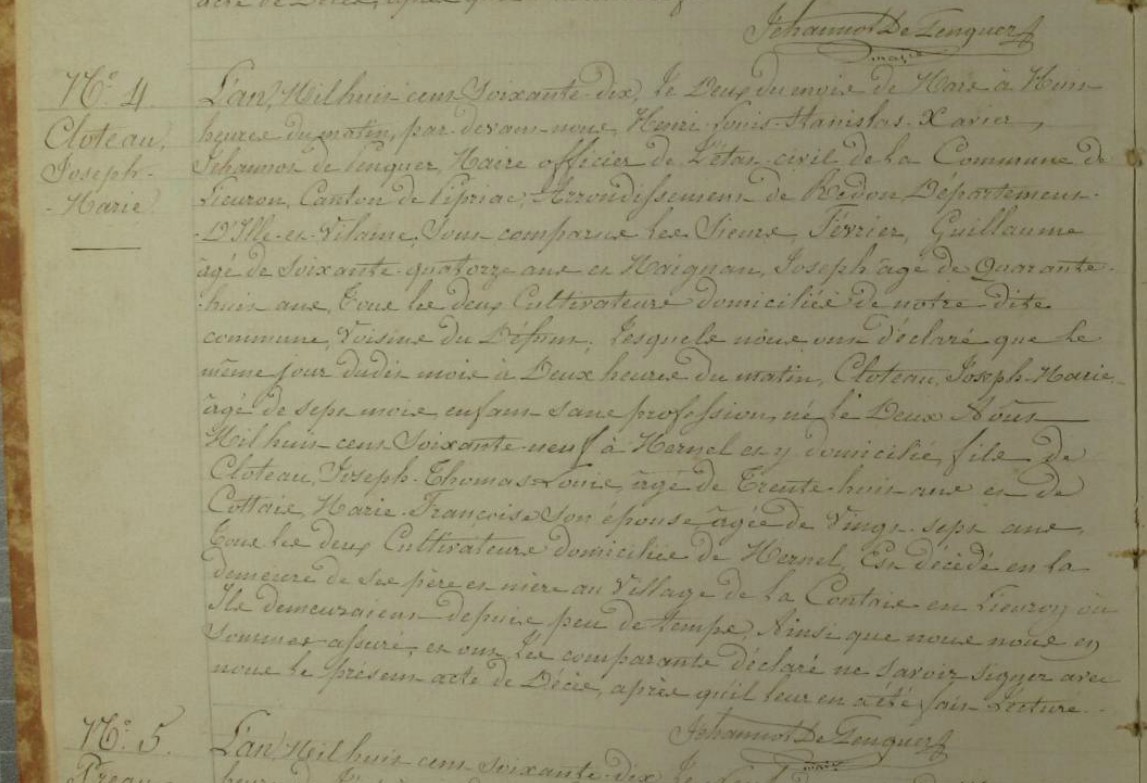 acte de Décès, après qu'il
Jéhannot De Penquer
maire
N° 4
Cloteau,
Joseph-
Marie
L'an, Mil huit cent Soixante-dix, le Deux du mois de Mars à Huit
heures du matin, par-devant-nous, Henri-Louis-Stanislas-Xavier,
Jéhannot de Penquer, Maire officier de L'état-civil de la Commune de
Lieuron, Canton de Pipriac, Arrondissement de Redon, Département-
-D'Ille-et-Vilaine, Sont comparus les Sieurs, Février, Guillaume
âgé de Soixante-quatorze ans et Maignan, Joseph âgé de Quarante-
-huit ans, Tous les deux Cultivateurs domiciliés de notre dite
commune, Voisins du Défunt, Lesquels nous ont déclaré que le
même jour dudit mois à Deux heures du matin, Cloteau, Joseph-Marie,
âgé de sept mois, enfant sans profession, né le Deux Août
Mil huit cent Soixante-neuf à Mernel et y domicilié, fils de
Cloteau, Joseph-Thomas-Louis, âgé de Trente-huit ans et de
Cottais, Marie-Françoise son épouse âgée de Vingt-sept ans,
Tous les deux Cultivateurs domiciliés de Mernel, Est décédé en la
demeure de ses père et mère au Village de la Contaie en Lieuron où
Ils demeuraient depuis peu de temps, Ainsi que nous nous en
sommes assuré, et ont les comparants déclaré ne savoir signer avec
nous le présent acte de Décès, après qu'il leur en a été fait Lecture.
Jéhannot De Penquer
maire
N° 5.
L'an, Mil huit cent soixante-dix, le